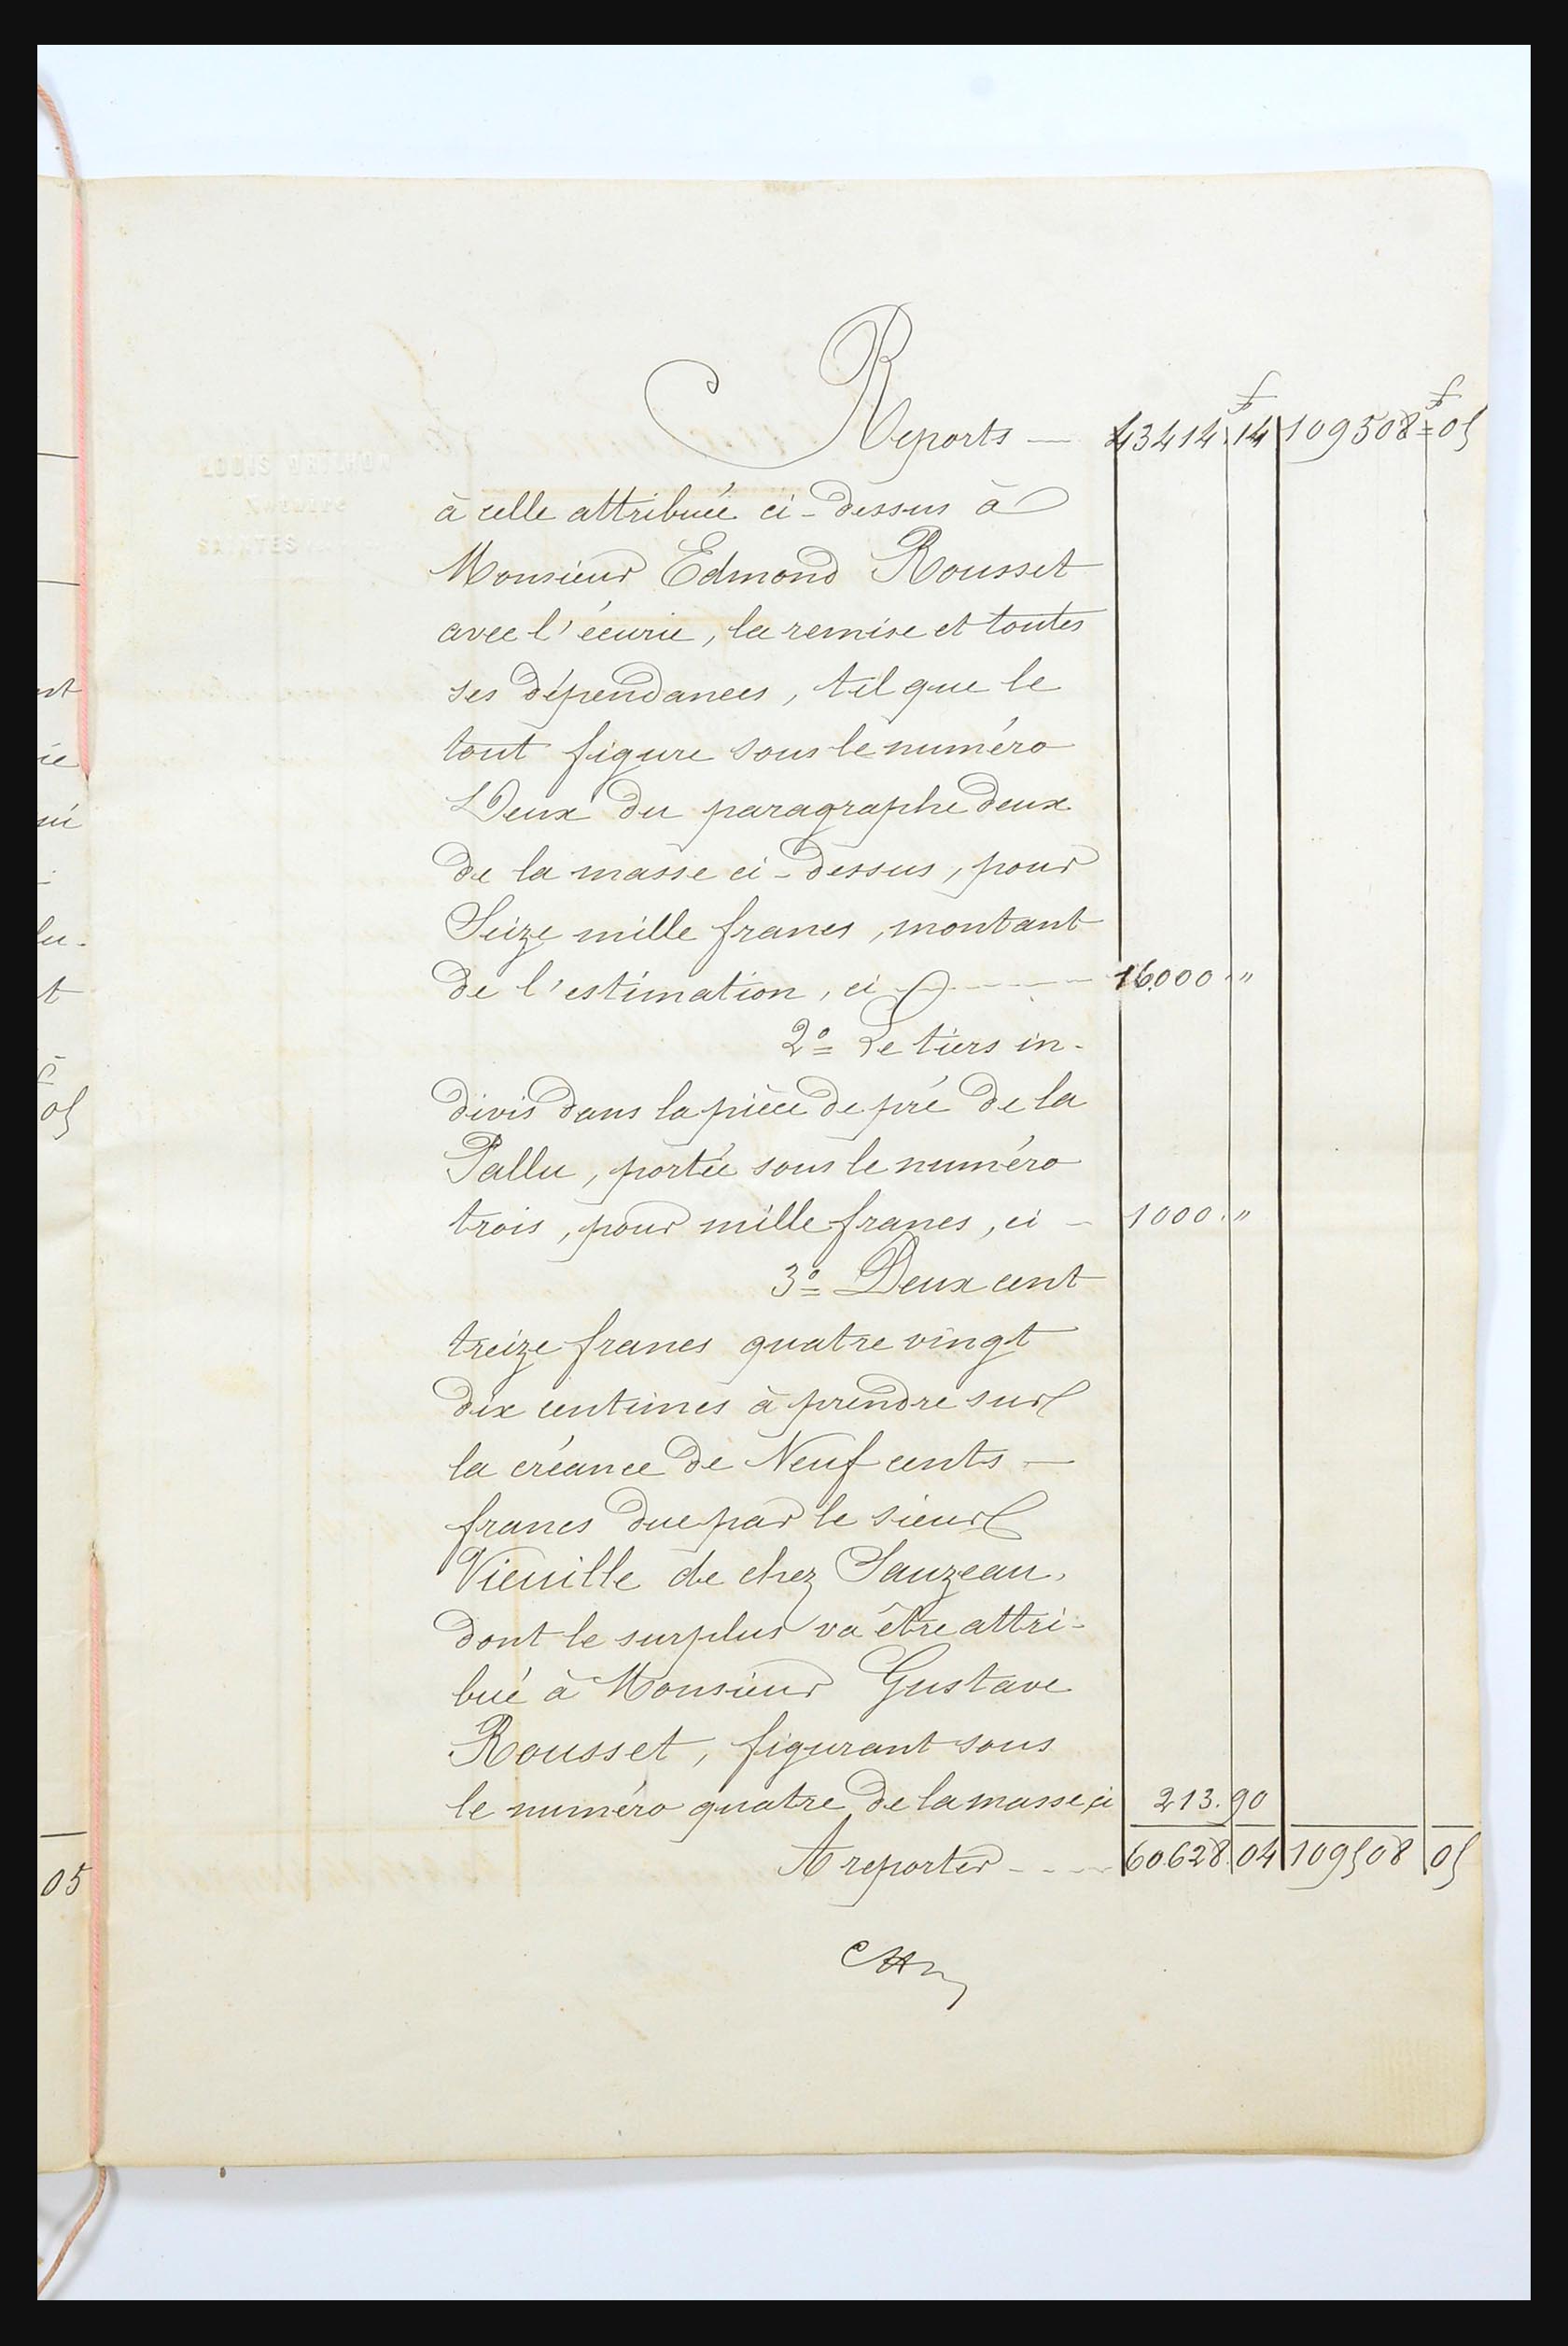 Reports — 43414.14 109508=05
à celle attribuée ci-dessus à
Monsieur Edmond Rousset
avec l'écurie, la remise et toutes
ses dépendances, tel que le
tout figure sous le numéro
Deux du paragraphe deux
de la masse ci-dessus, pour
Seize mille francs, montant
de l'estimation, ci 16.000."
2° Le tiers in-
divis dans la pièce de pré de la
Pallu, portée sous le numéro
trois, pour mille francs, ci - 1000."
3° Deux cent
treize francs quatre vingt
dix centimes à prendre sur
la créance de Neuf cents —
francs due par le sieur
Vieuille de chez Sauzeau,
dont le surplus va être attri-
bué à Monsieur Gustave
Rousset, figurant sous
le numéro quatre de la masse, ci 213.90
A reporter - - - 60.628.04 109508 05
LOUIS
SAINTES
nt
t
05
05